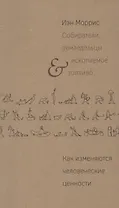 Иэн Моррис
Собиратели,
земледельцы
& ископаемое
топливо
Как изменяются
человеческие
ценности